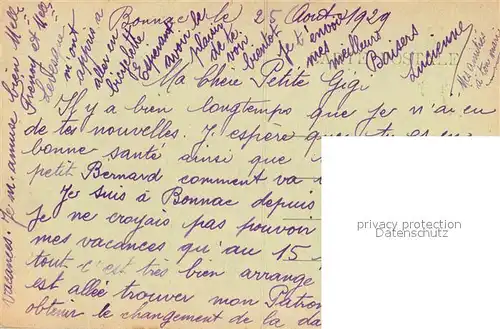 Bonnac le 25 Aout 1929
Ma Chère Petite Gigi
Il y a bien longtemps que je n'ai eu
de tes nouvelles. J'espère que tu es en
bonne santé ainsi que
petit Bernard comment va
Je suis à Bonnac depuis
Je ne croyais pas pouvoir
mes vacances qu'au 15
tout c'est très bien arrangé
est allée trouver mon Patron
obtenir le changement de la da
vacances. Je m'amuse bien Mell
m'ont
appris a
aller en
bicyclette
Esperant
avoir le
plaisir
de te
voir
bientot
Je t'envoi
mes
meilleurs
Baisers
Lucienne
privacy protection
Datenschutz